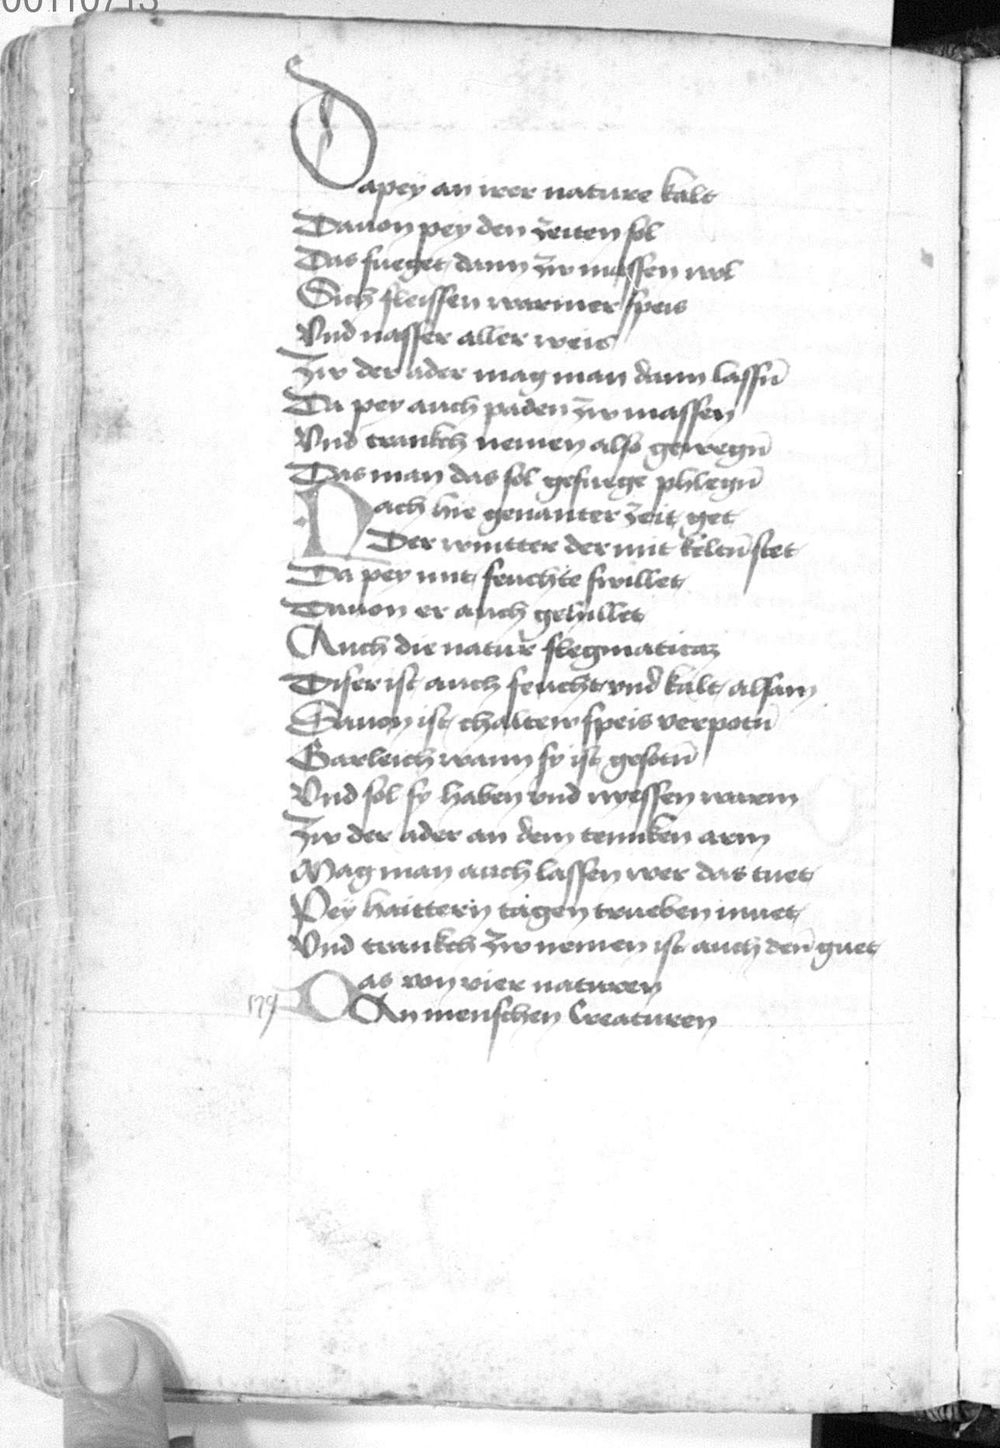 00110713
Dapey an irer nature kalt
Dauon pey den zeiten sol
Das fueget dann zw massen wol
Sich fleissen warmer speis
Vnd nasser aller weis
Zw der ader mag man dann lassn̄
Da pey auch paden zw massen
Vnd trankch nemen also gewegn̄
Das man das sol gefuege phlegn̄
Nach hie genanter zeit get
Der wintter der mit keltn̄ stet
Da pey mit feuchte swillet
Dauon er auch gehillet
Auch die natur flegmaticam
Diser ist auch feucht vnd kalt alsam
Dauon ist chaltew speis verpotn̄
Garleich wann sy ist gesotn̄
Vnd sol sy haben vnd messen warm
Zw der ader an dem tennken arm
Mag man auch lassen wer das tuet
Peÿ haittern tagen trueben muet
Vnd trankch zw nemen ist auch den̄ guet
Das von vier naturen
An menschen Creaturen